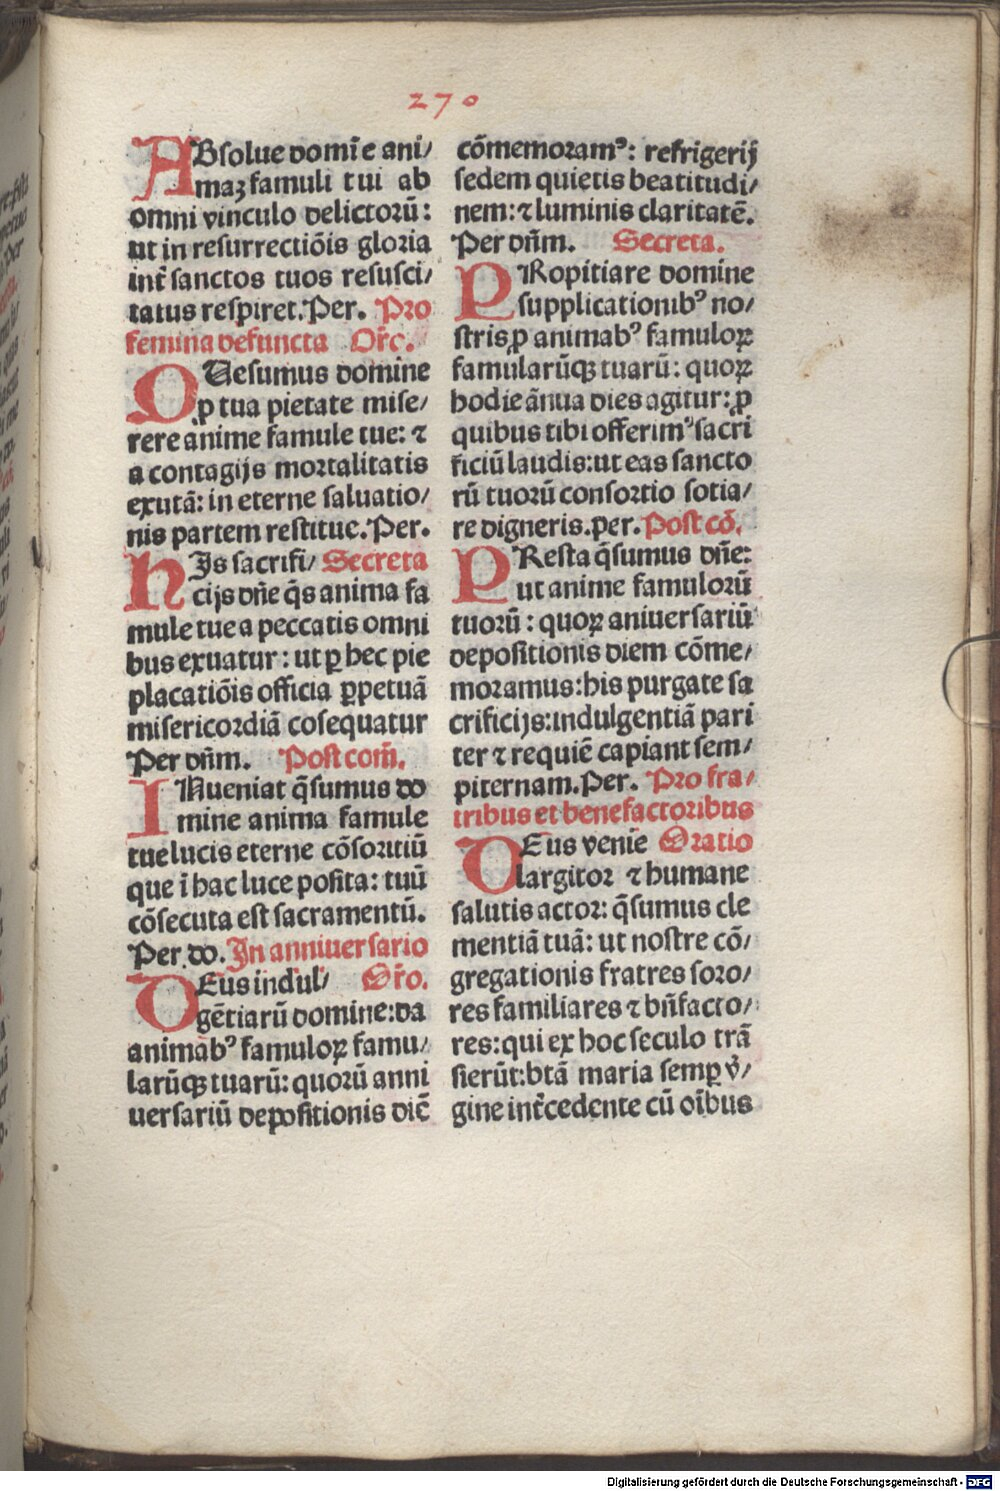 270
ABsolue domīe ani/
maꝫ famuli tui ab
omni vinculo delictorū:
ut in resurrectiōis gloria
int̄ sanctos tuos resusci/
tatus respiret. Per. Pro
femina defuncta Or̄o.
QUesumus domine
ꝓ tua pietate mise/
rere anime famule tue: ⁊
a contagijs mortalitatis
exutā: in eterne saluatio/
nis partem restitue. Per.
HIs sacrifi/ Secreta
cijs dn̄e q̄s anima fa
mule tue a peccatis omni
bus exuatur: ut ꝑ hec pie
placatiōis officia ꝑpetuā
misericordiā cosequatur
Per dn̄m. Post com̄.
INueniat q̄sumus do
mine anima famule
tue lucis eterne cōsortiū
que ī hac luce posita: tuū
cōsecuta est sacramentū.
Per do. In anniuersario
DEus indul/ Or̄o.
gētiarū domine: da
animabꝰ famuloꝝ famu/
larūqꝫ tuarū: quorū anni
uersariū depositionis diē
cōmemoramꝰ: refrigerij
sedem quietis beatitudi/
nem: ⁊ luminis claritatē.
Per dn̄m. Secreta.
PRopitiare domine
supplicationibꝰ no/
stris ꝓ animabꝰ famuloꝝ
famularūqꝫ tuarū: quoꝝ
hodie ānua dies agitur: ꝓ
quibus tibi offerimꝰ sacri
ficiū laudis: ut eas sancto
rū tuorū consortio sotia/
re digneris. per. Post cō.
PResta q̄sumus dn̄e:
ut anime famulorū
tuorū: quoꝝ aniuersariū
depositionis diem cōme/
moramus: his purgate sa
crificijs: indulgentiā pari
ter ⁊ requiē capiant sem/
piternam. Per. Pro fra/
tribus et benefactoribus
DEus venie Oratio
largitor ⁊ humane
salutis actor: q̄sumus cle
mentiā tuā: ut nostre cō/
gregationis fratres soro/
res familiares ⁊ bn̄facto/
res: qui ex hoc seculo trā
sierūt: btā maria semꝑ v̄/
gine int̄cedente cū oībus
Digitalisierung gefördert durch die Deutsche Forschungsgemeinschaft - DFG